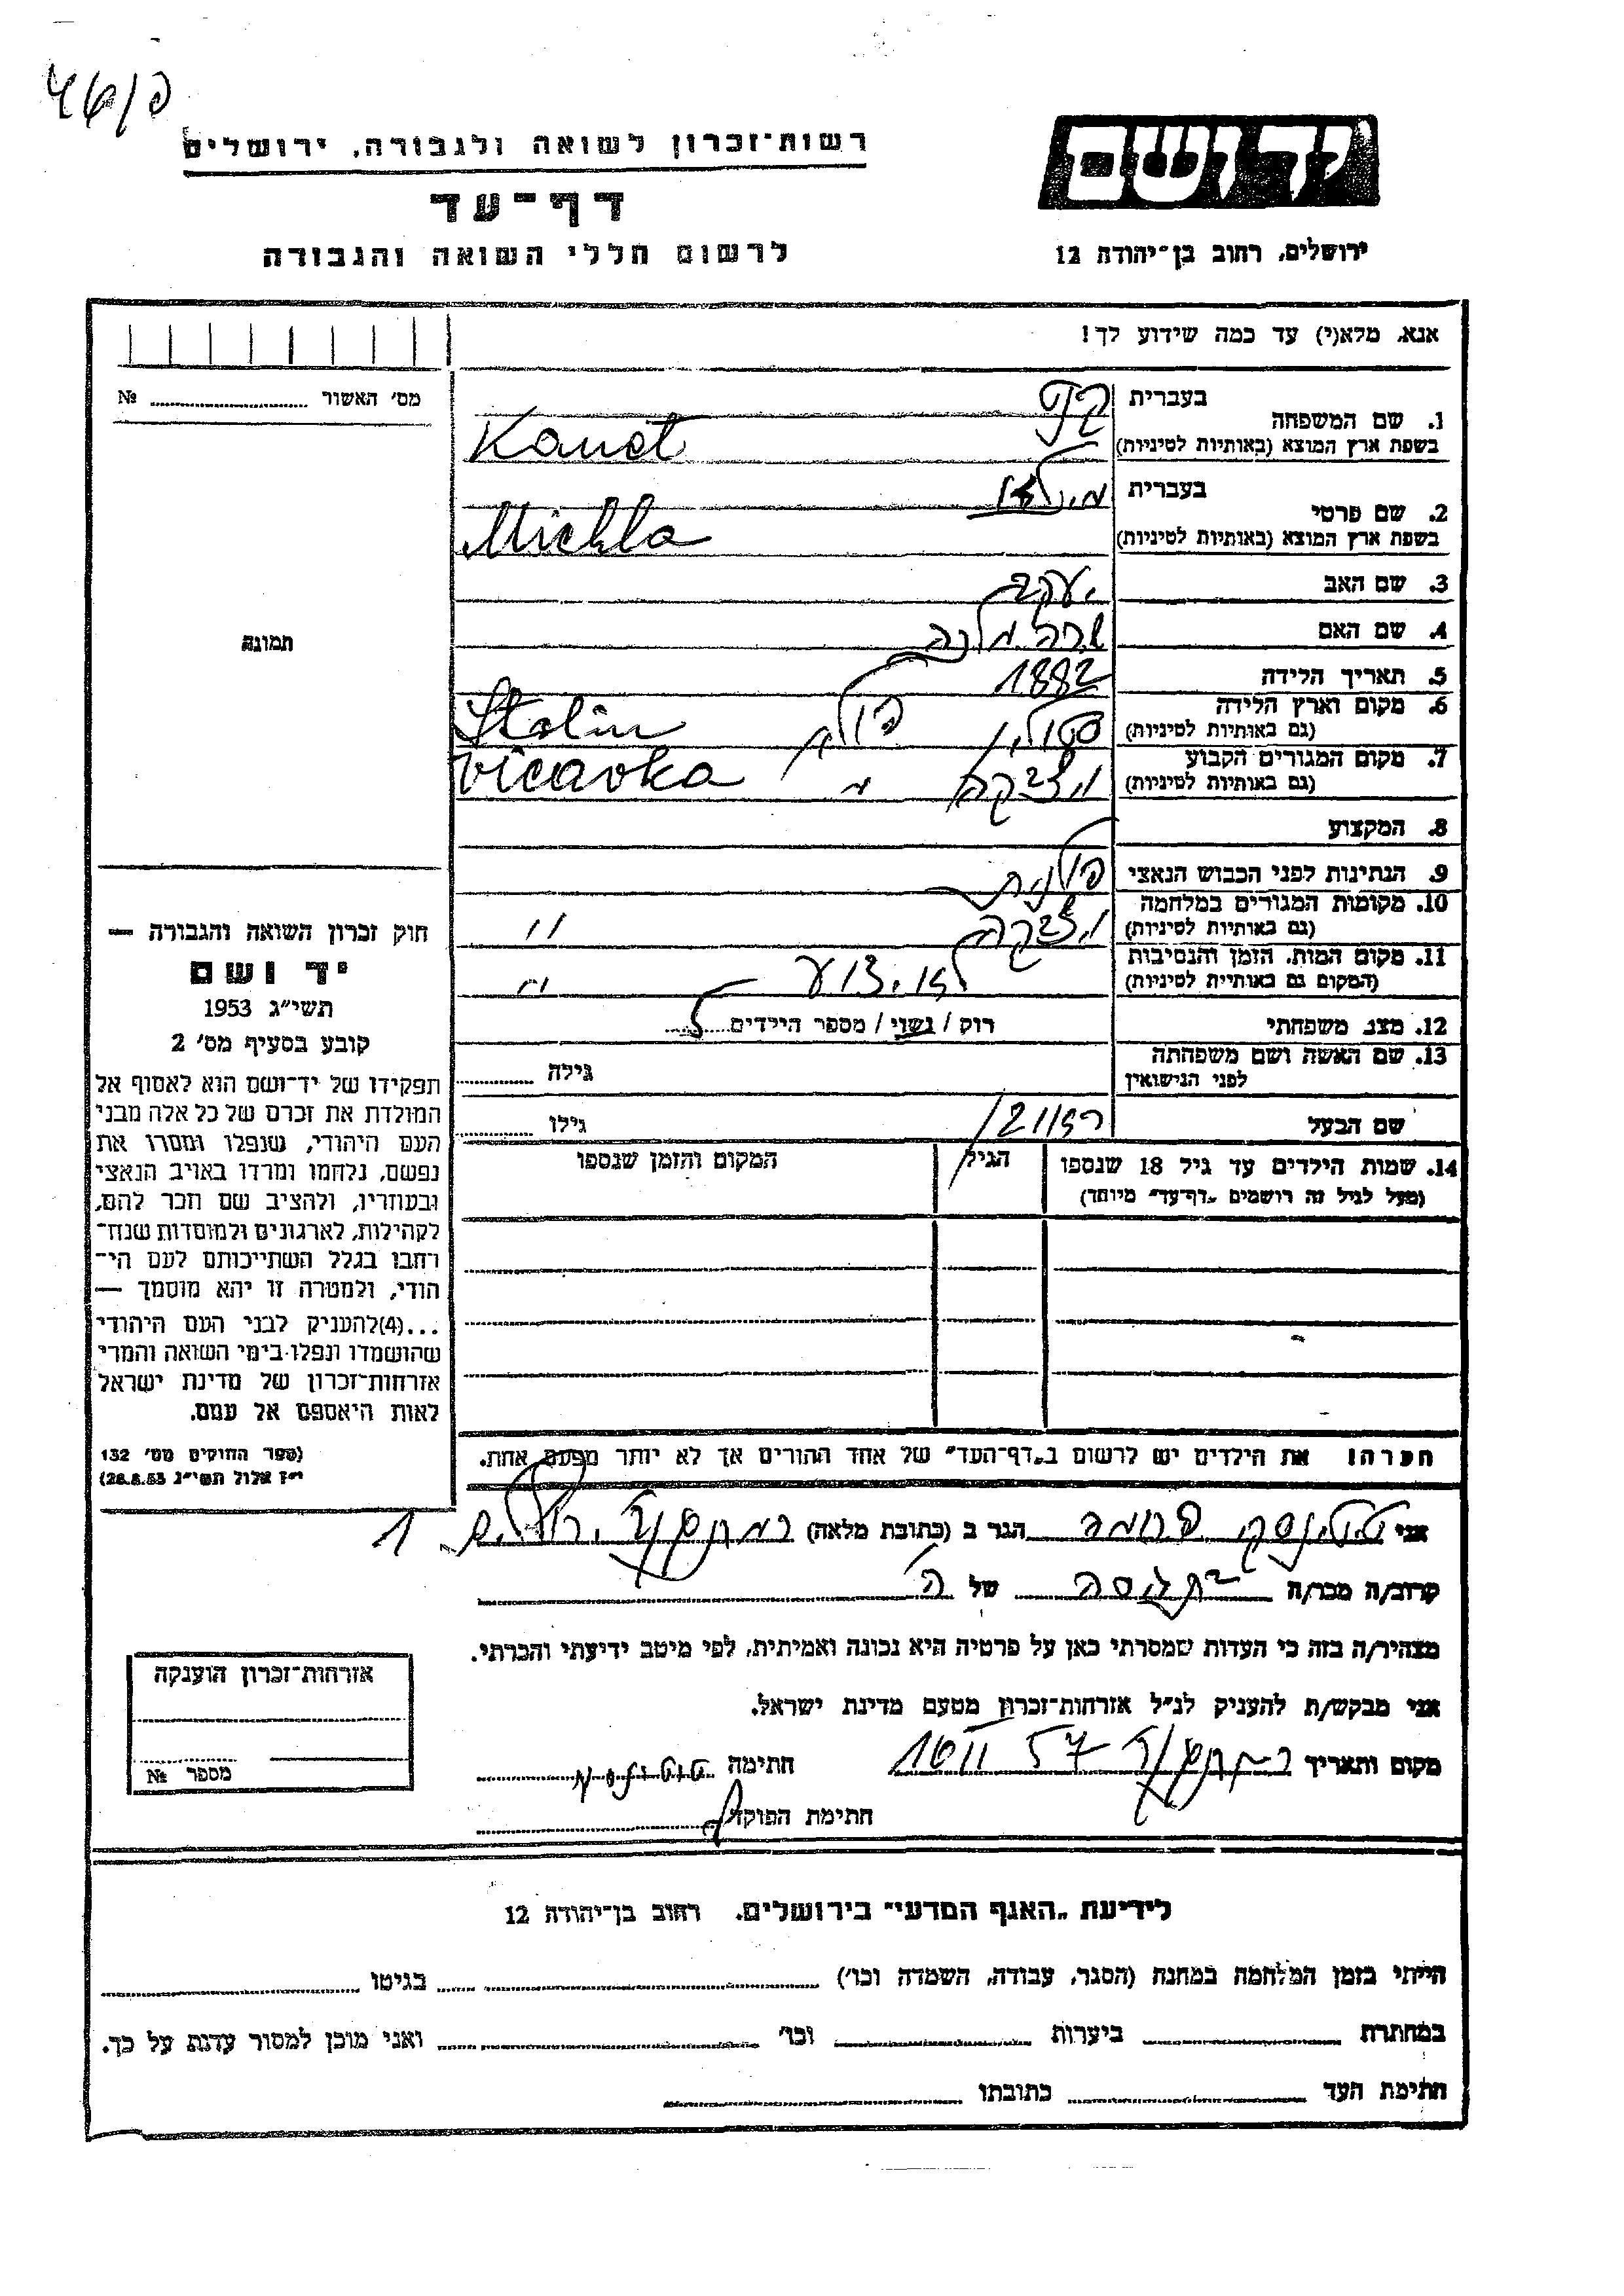 רשות־זכרון לשואה ולגבורה, ירושלים
יד ושם
דף־עד
לרשום חללי השואה והגבורה
ירושלים, רחוב בן־יהודה 12
אנא, מלא(י) עד כמה שידוע לך!
מס׳ האשור № 
1. שם המשפחה
בעברית
בשפת ארץ המוצא (באותיות לטיניות)
Kanet
2. שם פרטי
בעברית
בשפת ארץ המוצא (באותיות לטיניות)
Michla
3. שם האב יעקב
4. שם האם שרה מלכה
5. תאריך הלידה 1882
6. מקום וארץ הלידה
(גם באותיות לטיניות)
סטולין פולין Stolin
7. מקום המגורים הקבוע
(גם באותיות לטיניות)
vicavka
8. המקצוע
9. הנתינות לפני הכבוש הנאצי פולנית
10. מקומות המגורים במלחמה
(גם באותיות לטיניות)
"
11. מקום המות, הזמן והנסיבות
(המקום גם באותיות לטיניות)
לא ידוע "
12. מצב משפחתי רוק / נשוי / מספר הילדים
13. שם האשה ושם משפחתה
לפני הנישואין
גילה
שם הבעל
גילו
14. שמות הילדים עד גיל 18 שנספו
(מעל לגיל זה רושמים „דף־עד״ מיוחד)
הגיל
המקום והזמן שנספו
תמונה
חוק זכרון השואה והגבורה —
יד ושם
תשי״ג 1953
קובע בסעיף מס׳ 2
תפקידו של יד־ושם הוא לאסוף אל
המולדת את זכרם של כל אלה מבני
העם היהודי, שנפלו ומסרו את
נפשם, נלחמו ומרדו באויב הנאצי
ובעוזריו, ולהציב שם וזכר להם,
לקהילות, לארגונים ולמוסדות שנח־
רבו בגלל השתייכותם לעם הי־
הודי, ולמטרה זו יהא מוסמך —
...(4)להעניק לבני העם היהודי
שהושמדו ונפלו בימי השואה והמרי
אזרחות־זכרון של מדינת ישראל
לאות היאספם אל עמם.
(ספר החוקים מס׳ 132
י״ז אלול תשי״ג 28.8.53)
הערה! את הילדים יש לרשום ב„דף־העד״ של אחד ההורים אך לא יותר מפעם אחת.
אני פרומה הגר ב (כתובת מלאה) ירושלים
קרוב/ה מכר/ה של
מצהיר/ה בזה כי העדות שמסרתי כאן על פרטיה היא נכונה ואמיתית, לפי מיטב ידיעתי והכרתי.
אני מבקש/ת להעניק לנ״ל אזרחות־זכרון מטעם מדינת ישראל.
מקום ותאריך חתימה
חתימת הפוקד
אזרחות־זכרון הוענקה
מספר №
לידיעת „האגף המדעי״ בירושלים, רחוב בן־יהודה 12
הייתי בזמן המלחמה במחנה (הסגר, עבודה, השמדה וכו׳) בגיטו
במחתרת ביערות וכו׳ ואני מוכן למסור עדות על כך.
חתימת העד כתובתו